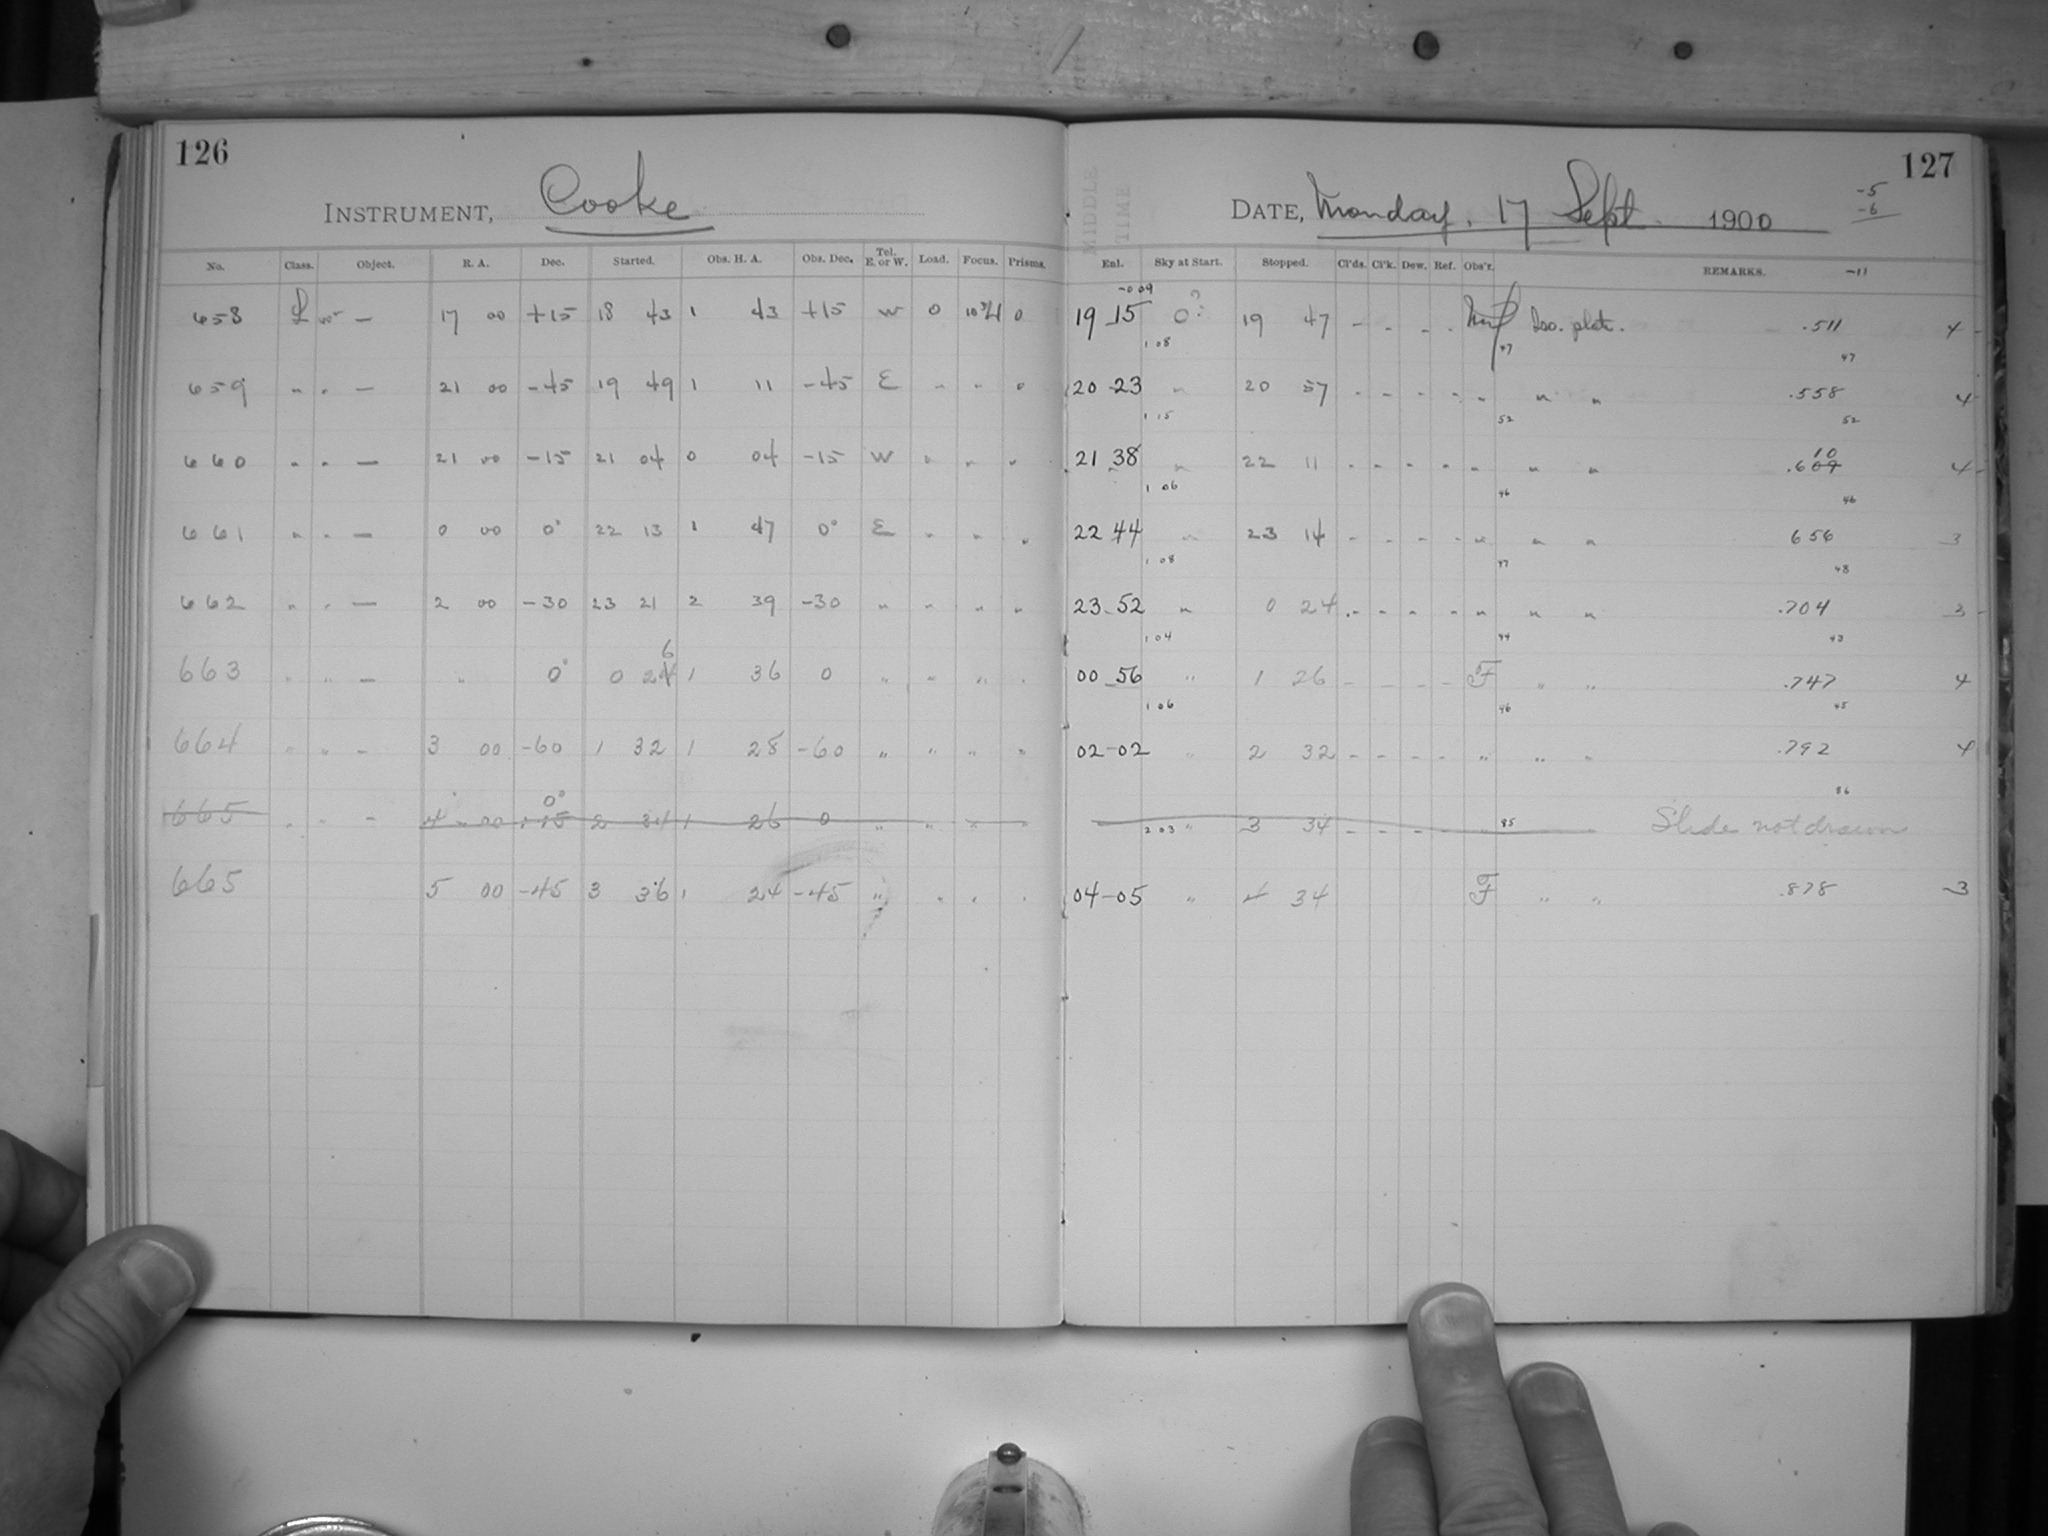 126
INSTRUMENT, Cooke
No. Class. Object. R. A. Dec. Started. Obs. H. A. Obs. Dec. Tel. E. or W. Load. Focus. Prisms.
658 — 17 00 +15 18 43 1 43 +15 W 0 0
659 " " — 21 00 -45 19 49 1 11 -45 E " " 0
660 " " — 21 00 -15 21 04 0 04 -15 W " " "
661 " " — 0 00 0° 22 13 1 47 0° E " " "
662 " " — 2 00 -30 23 21 2 39 -30 " " " "
663 " " — " 0° 0 26 1 36 0 " " " "
664 " " - 3 00 -60 1 32 1 28 -60 " " " "
665 " " - 4 00 0° 2 34 1 26 0 " " " "
665 5 00 -45 3 36 1 24 -45 " " " "
127
MIDDLE TIME
DATE, Monday, 17 Sept. 1900
-5
-6
-11
Enl. Sky at Start. Stopped. Cl'ds. Cl'k. Dew. Ref. Obs'r. REMARKS.
-009
19 15 0? 19 47 - - - - Iso. plate. .511 4
1 08 47 47
20 23 " 20 57 - - - - " " " .558 4
1 15 52 52
21 38 " 22 11 - - - - " " " .609 10 4
1 06 46 46
22 44 " 23 14 - - - - " " " 656 3
1 08 47 48
23 52 " 0 24 - - - - " " " .704 3
1 04 44 43
00 56 " 1 26 - - - - F " " .747 4
1 06 46 45
02-02 " 2 32 - - - - " " " .792 4
86
2 03 " 3 34 - - - - " 85 " Slide not drawn
04-05 " 4 34 F " " .878 3